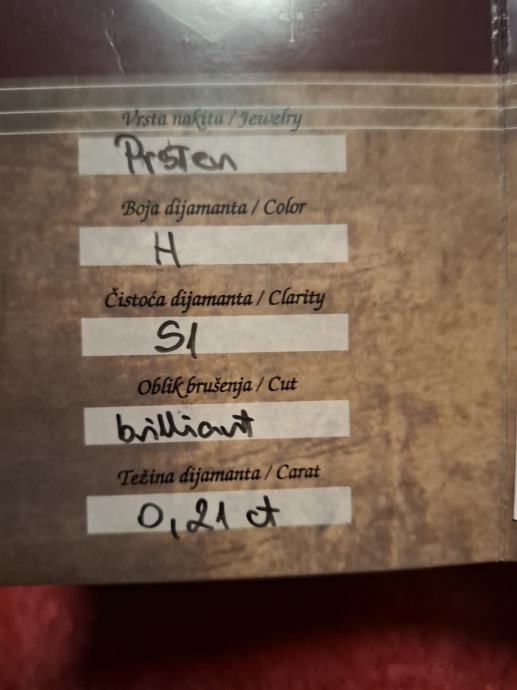 Vrsta nakita / Jewelry
Prsten
Boja dijamanta / Color
H
Čistoća dijamanta / Clarity
SI
Oblik brušenja / Cut
brilliant
Težina dijamanta / Carat
0,21 ct